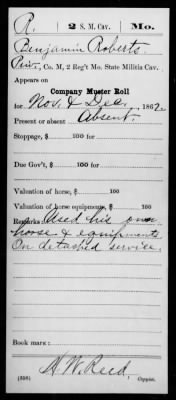 R. 2 S. M. Cav. Mo.
Benjamin Roberts
Priv., Co. M, 2 Reg't Mo. State Militia Cav.
Appears on
Company Muster Roll
for Nov. & Dec., 1862.
Present or absent Absent.
Stoppage, $ 100 for
Due Gov't, $ 100 for
Valuation of horse, $ 100
Valuation of horse equipments, $ 100
Remarks: Used his own
horse & equipments
On detached service.
Book mark:
H. W. Reed
(358) Copyist.